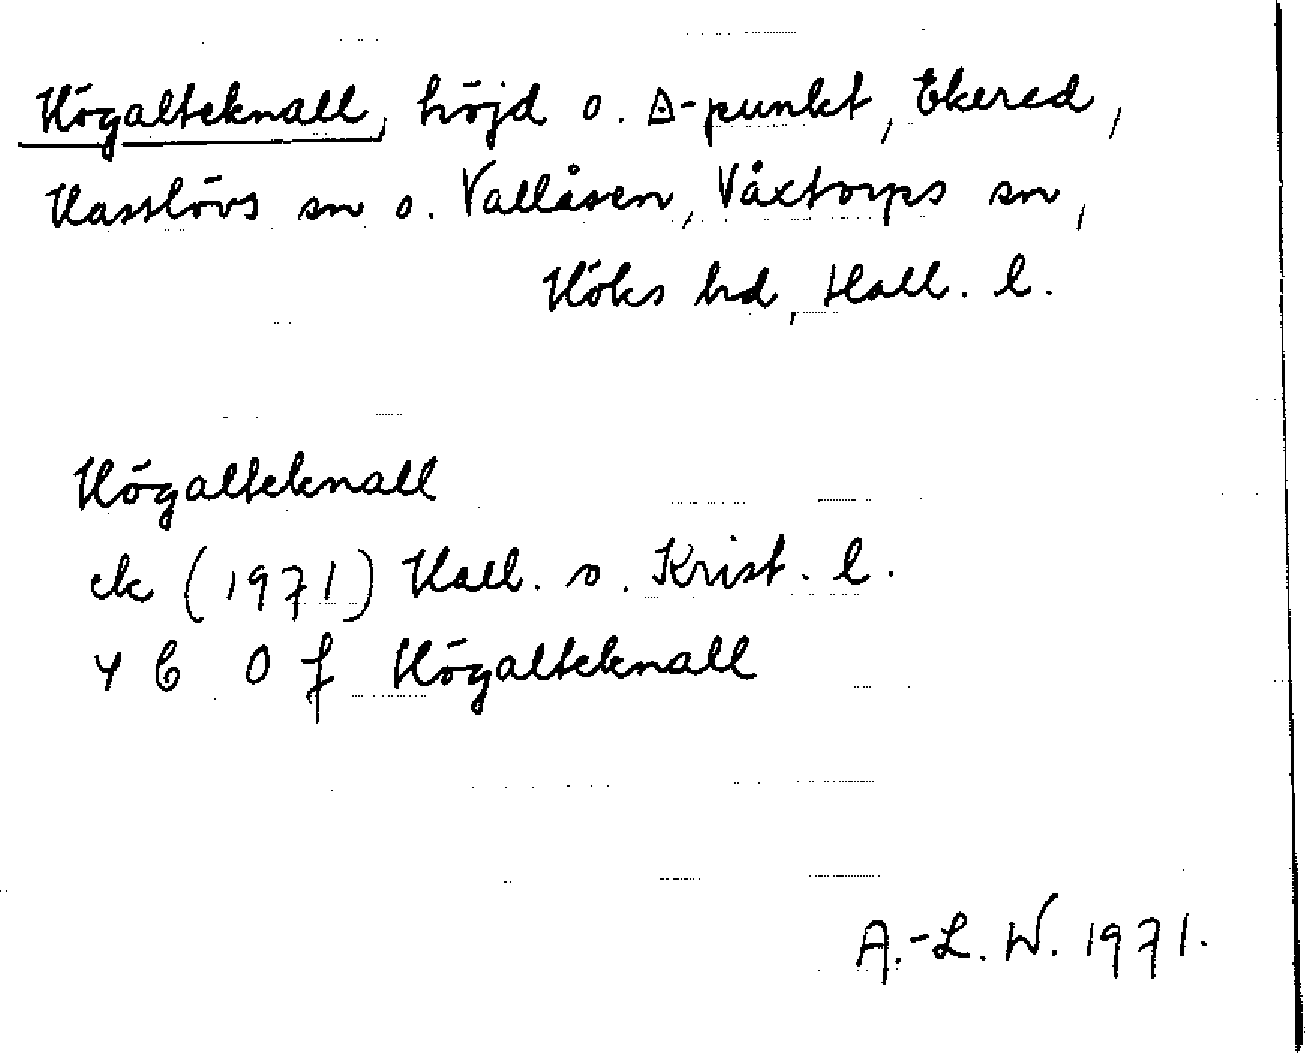 Högalteknall, höjd o. △-punkt, Ekered,
Hasslövs sn o. Vallåsen, Våxtorps sn,
Höks hd, Hall. l.
Högalteknall
ek (1971) Hall. o. Krist. l.
4 C 0 f Högalteknall
A.-L. W. 1971.